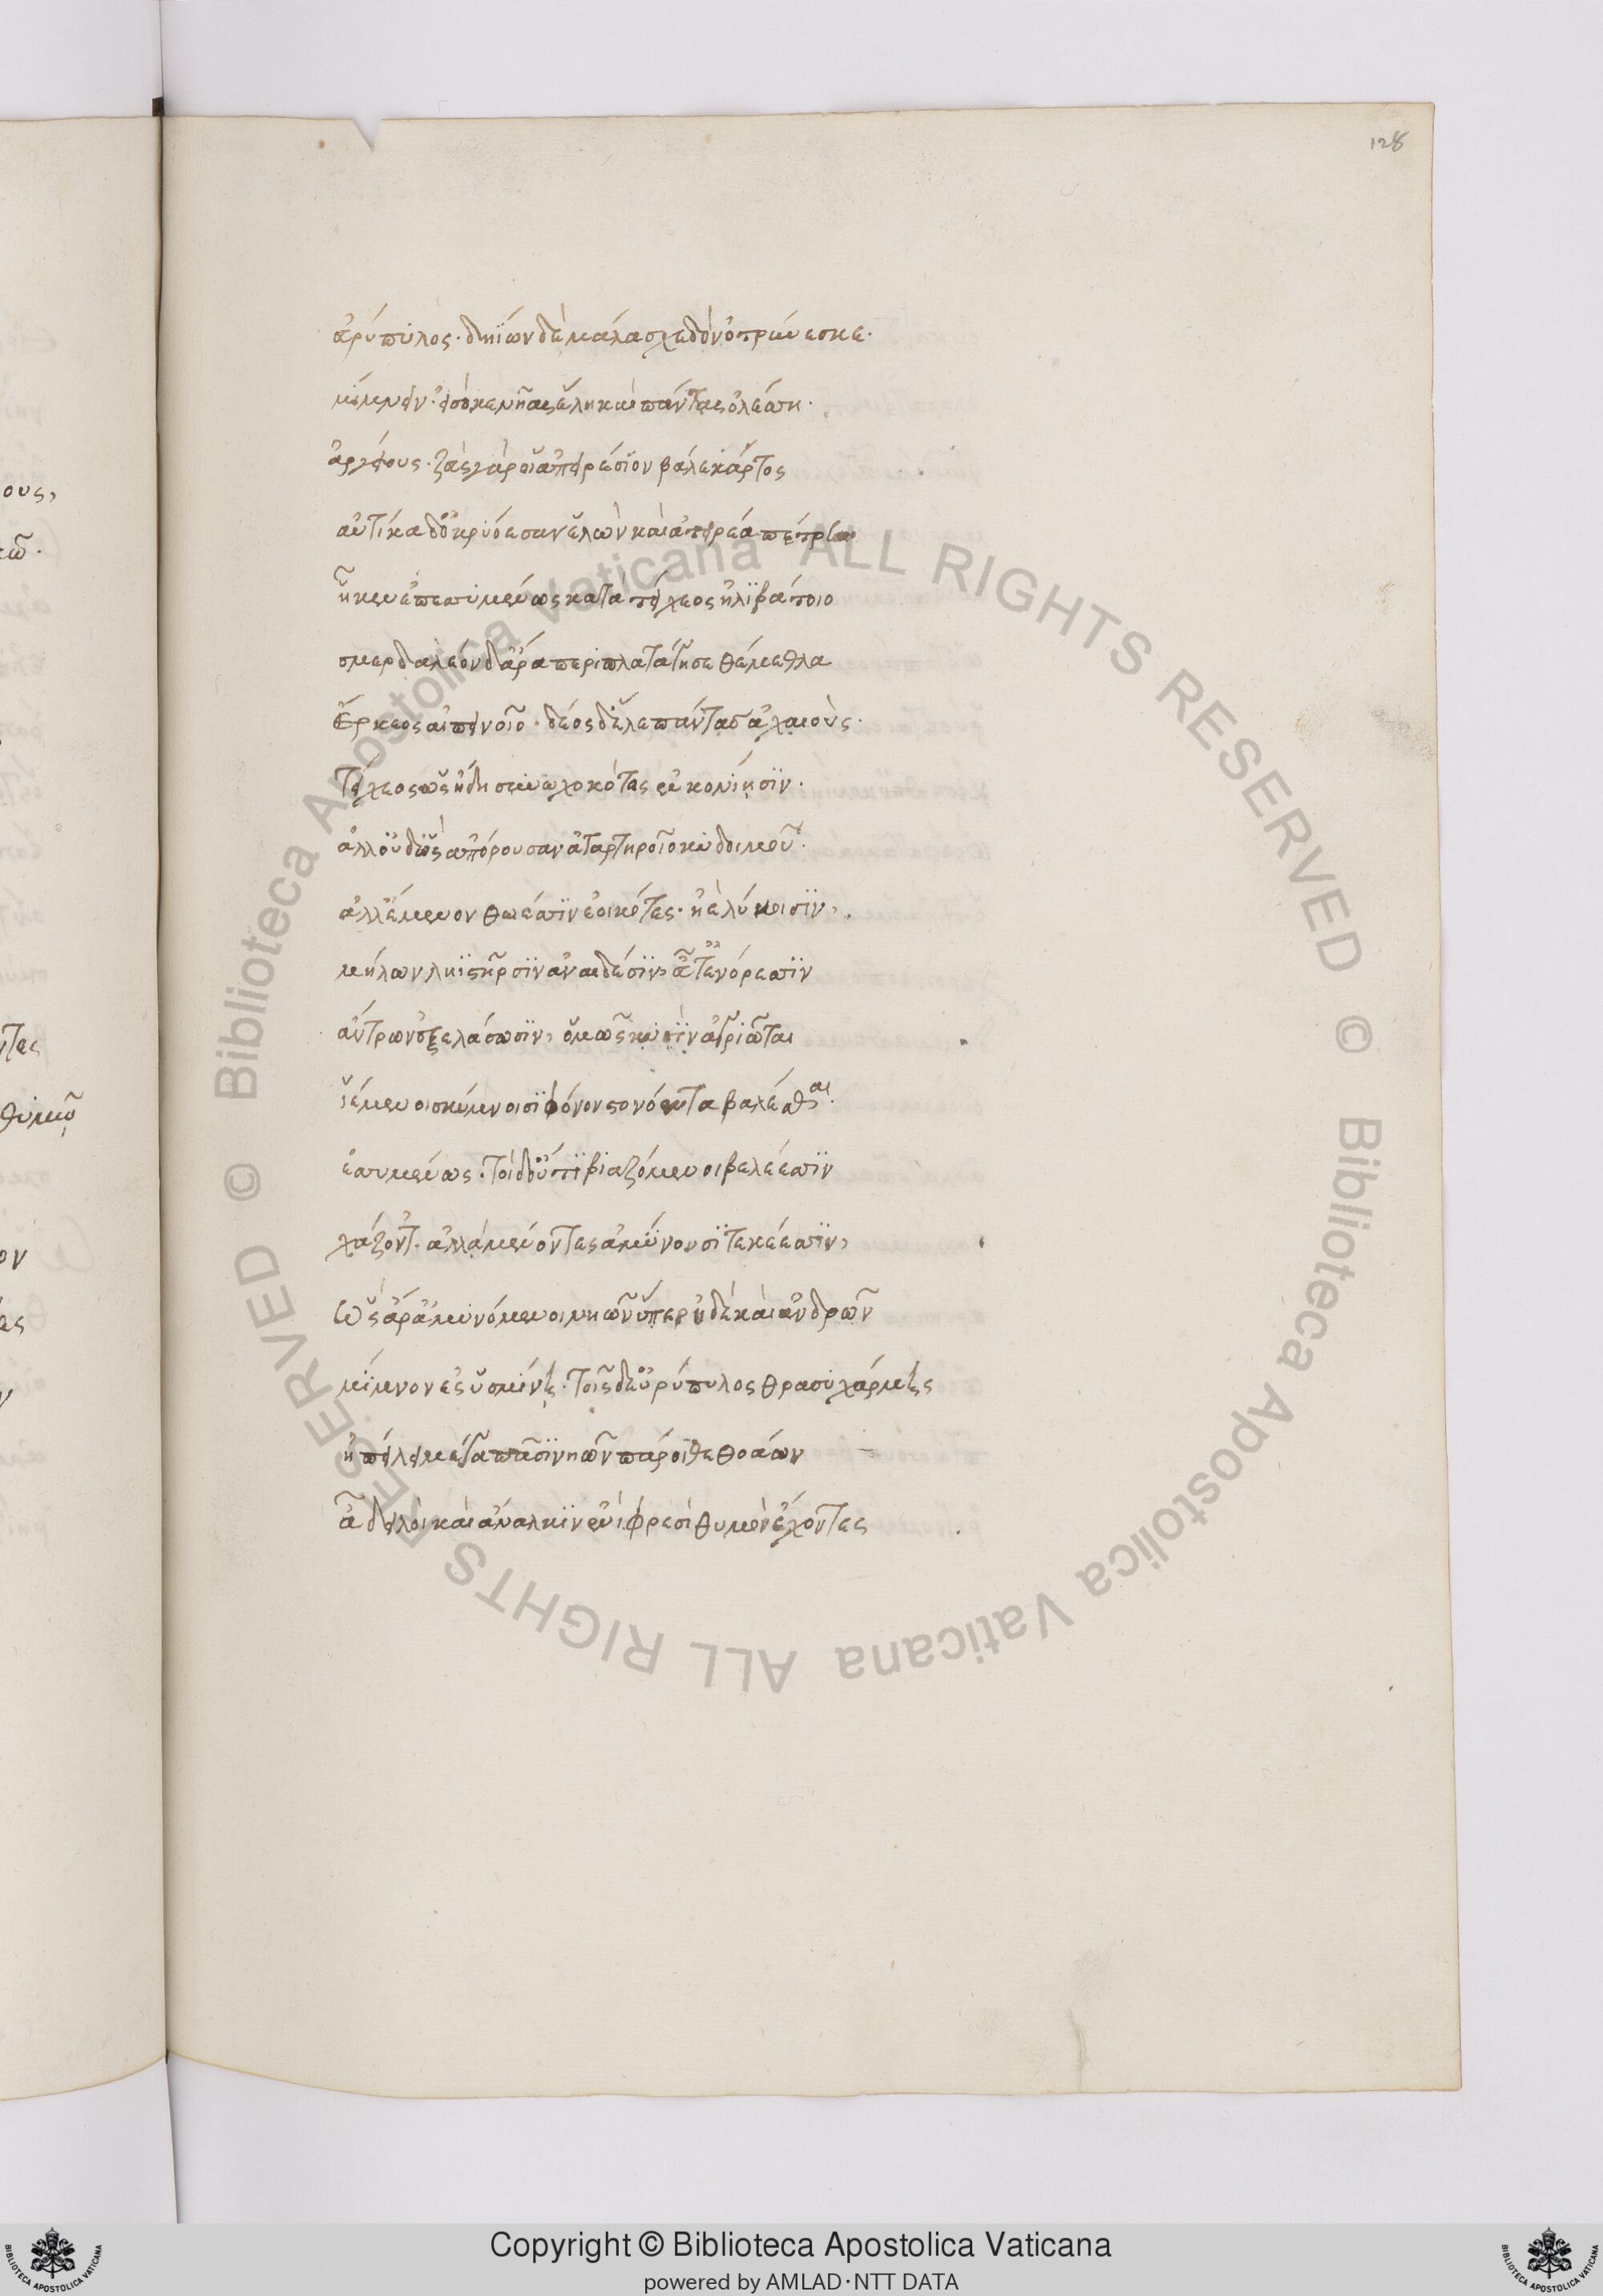 128
εὐρύπυλος· δηΐων δὲ μάλα σχεδὸν ὀτρύνεσκε·
μίμνειν· εἰσόκε νῆας ἕλῃ καὶ πάντας ὀλέσσῃ·
ἀργείους· ζεὺς γάρ οἱ ἀπειρέσιον βάλε κάρτος
αὐτίκα δ' ὀκριόεσσαν ἑλὼν καὶ ἀτειρέα πέτρην
ἧκεν ἐπεσσυμένως κατὰ τείχεος ἠλιβάτοιο
σμερδαλέον δ' ἄρα πάντα περιπλατάγησε θέμεθλα
ἕρκεος αἰπεινοῖο· δέος δ' ἕλε πάντας ἀχαιούς·
τείχεος ὡς ἤδη συνωχοκότος ἐν κονίῃσιν·
ἀλλ' οὐδ' ὣς ἀπόρουσαν ἀταρτηροῖο κυδοιμοῦ·
ἀλλ' ἔμενον θώεσσιν ἐοικότες· ἠὲ λύκοισιν,
μήλων ληϊστῆρσιν ἀναιδέσιν, οὕς τ' ἐν ὄρεσσιν
ἄντρων ἐξελάσωσιν, ὁμῶς κυσὶν ἀγριῶται
ἱέμενοι σκύμνοισι φόνον στονόεντα βαλέσθαι·
ἐσσυμένως· τοὶ δ' οὔτι βιαζόμενοι βελέεσσιν
χάζοντ'· ἀλλὰ μένοντες ἀμύνουσι τεκέεσσιν,
Ὣς ἄρ' ἀμυνόμενοι νηῶν ὕπερ ἠδὲ καὶ ἀνδρῶν
μίμνον ἐς ὑσμίνην· τοῖς δ' εὐρύπυλος θρασυχάρμης
ἠπείλει μέγα πᾶσι νηῶν πάροιθε θοάων
ἆ δειλοὶ καὶ ἄναλκιν ἐνὶ φρεσὶ θυμὸν ἔχοντες
Copyright © Biblioteca Apostolica Vaticana
powered by AMLAD·NTT DATA